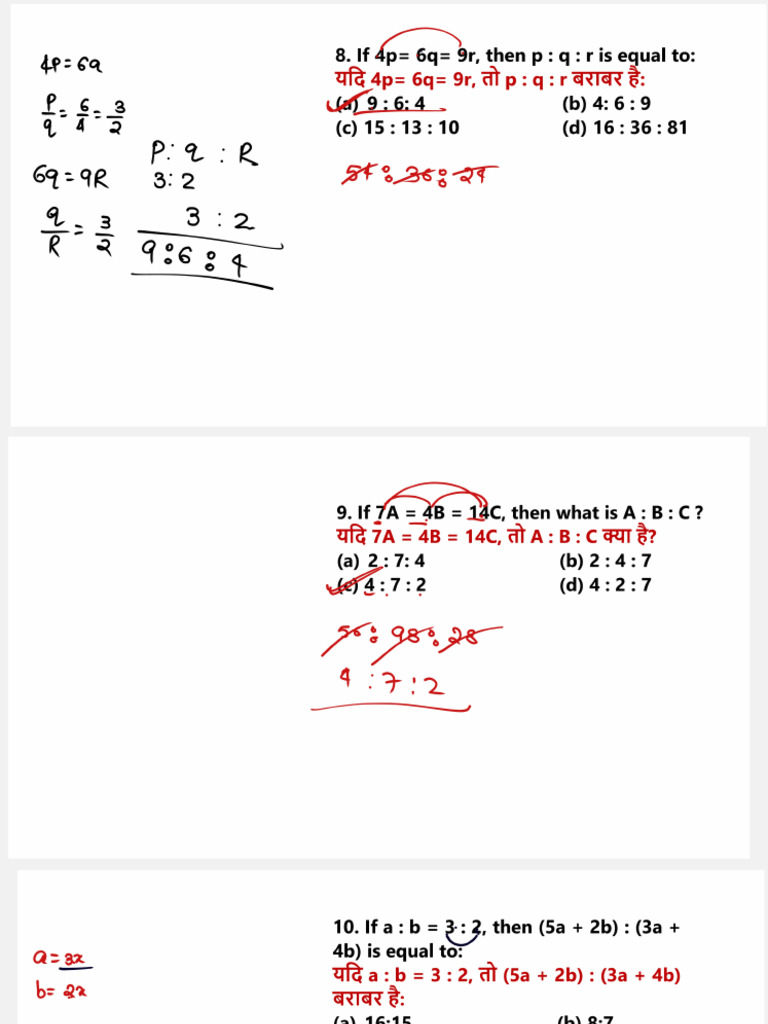 8. If 4p= 6q= 9r, then p : q : r is equal to:
यदि 4p= 6q= 9r, तो p : q : r बराबर है:
(a) 9 : 6: 4 (b) 4: 6 : 9
(c) 15 : 13 : 10 (d) 16 : 36 : 81
4p = 6q
p/q = 6/4 = 3/2
6q = 9R
q/R = 3/2
P : q : R
3 : 2
3 : 2
9 : 6 : 4
54 : 36 : 24
9. If 7A = 4B = 14C, then what is A : B : C ?
यदि 7A = 4B = 14C, तो A : B : C क्या है?
(a) 2 : 7: 4 (b) 2 : 4 : 7
(c) 4 : 7 : 2 (d) 4 : 2 : 7
56 : 98 : 28
4 : 7 : 2
10. If a : b = 3 : 2, then (5a + 2b) : (3a +
4b) is equal to:
यदि a : b = 3 : 2, तो (5a + 2b) : (3a + 4b)
बराबर है:
(a) 16:15 (b) 8:7
a = 3x
b = 2x